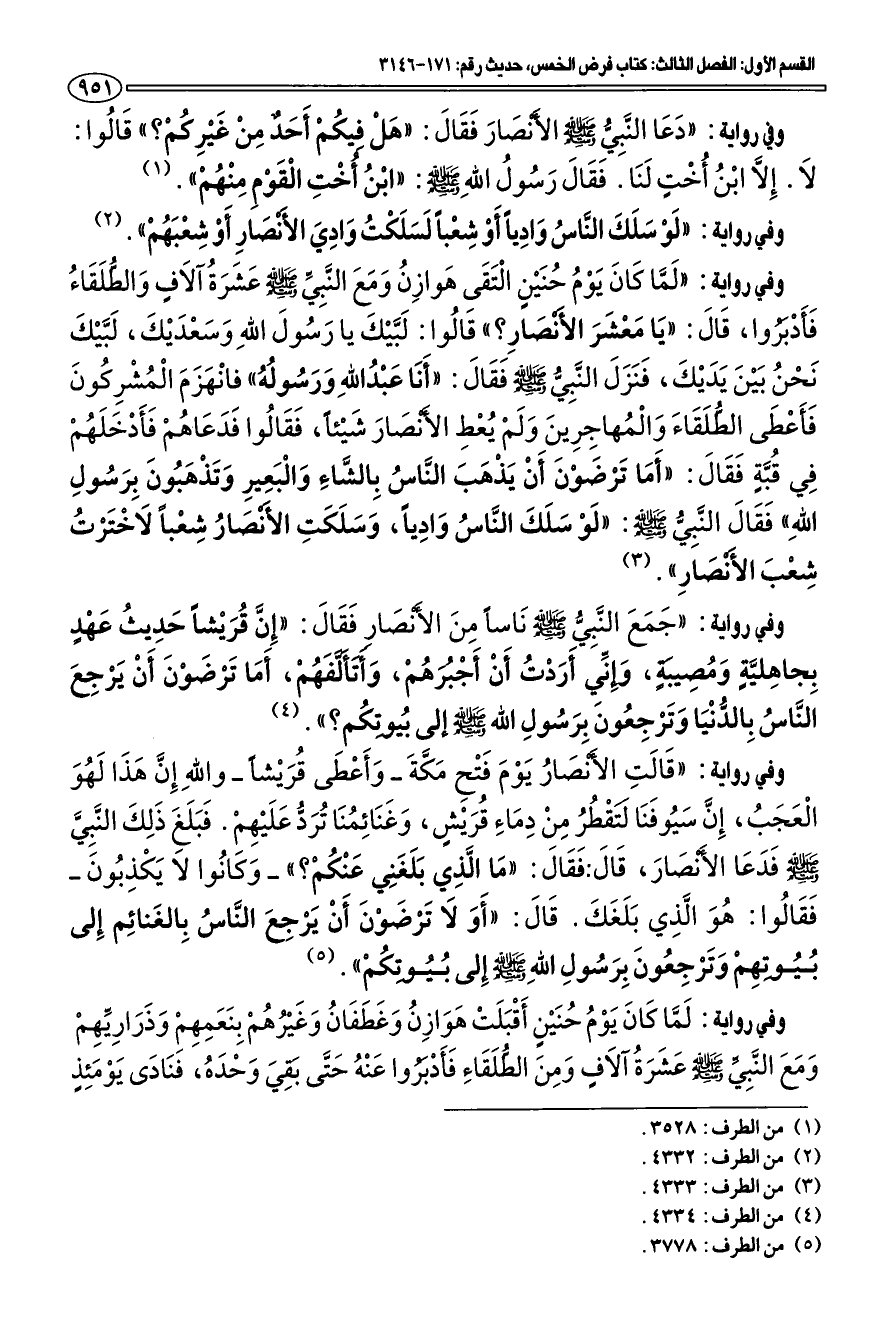 القسم الأول: الفصل الثالث: كتاب فرض الخمس، حديث رقم: ١٧١-٣١٤٦
٩٥١
وفي رواية: «دَعَا النَّبِيُّ ﷺ الأَنْصَارَ فَقَالَ: «هَلْ فِيكُمْ أَحَدٌ مِنْ غَيْرِكُمْ؟» قَالُوا:
لَا. إِلَّا ابْنُ أُخْتٍ لَنَا. فَقَالَ رَسُولُ اللهِ ﷺ: «ابْنُ أُخْتِ الْقَوْمِ مِنْهُمْ». (١)
وفي رواية: «لَوْ سَلَكَ النَّاسُ وَادِياً أَوْ شِعْباً لَسَلَكْتُ وَادِيَ الأَنْصَارِ أَوْ شِعْبَهُمْ». (٢)
وفي رواية: «لَمَّا كَانَ يَوْمُ حُنَيْنٍ الْتَقَى هَوَازِنُ وَمَعَ النَّبِيِّ ﷺ عَشَرَةُ آلَافٍ وَالطُّلَقَاءُ
فَأَدْبَرُوا، قَالَ: «يَا مَعْشَرَ الأَنْصَارِ؟» قَالُوا: لَبَّيْكَ يا رَسُولَ اللهِ وَسَعْدَيْكَ، لَبَّيْكَ
نَحْنُ بَيْنَ يَدَيْكَ، فَنَزَلَ النَّبِيُّ ﷺ فَقَالَ: «أَنَا عَبْدُاللهِ وَرَسُولُهُ» فانْهَزَمَ الْمُشْرِكُونَ
فَأَعْطَى الطُّلَقَاءَ وَالْمُهاجِرِينَ وَلَمْ يُعْطِ الأَنْصَارَ شَيْئاً، فَقَالُوا فَدَعَاهُمْ فَأَدْخَلَهُمْ
فِي قُبَّةٍ فَقَالَ: «أَمَا تَرْضَوْنَ أَنْ يَذْهَبَ النَّاسُ بِالشَّاءِ وَالْبَعِيرِ وَتَذْهَبُونَ بِرَسُولِ
اللهِ» فَقَالَ النَّبِيُّ ﷺ: «لَوْ سَلَكَ النَّاسُ وَادِياً، وَسَلَكَتِ الأَنْصَارُ شِعْباً لَاخْتَرْتُ
شِعْبَ الأَنْصَارِ». (٣)
وفي رواية: «جَمَعَ النَّبِيُّ ﷺ نَاساً مِنَ الأَنْصَارِ فَقَالَ: «إِنَّ قُرَيْشاً حَدِيثُ عَهْدٍ
بِجاهِلِيَّةٍ وَمُصِيبَةٍ، وَإِنِّي أَرَدْتُ أَنْ أَجْبُرَهُمْ، وَأَتَأَلَّفَهُمْ، أَمَا تَرْضَوْنَ أَنْ يَرْجِعَ
النَّاسُ بِالدُّنْيَا وَتَرْجِعُونَ بِرَسُولِ الله ﷺ إلى بُيوتِكُم؟». (٤)
وفي رواية: «قَالَتِ الأَنْصَارُ يَوْمَ فَتْحِ مَكَّةَ ـ وَأَعْطَى قُرَيْشاً ـ واللهِ إِنَّ هَذَا لَهُوَ
الْعَجَبُ، إِنَّ سَيُوفَنَا لَتَقْطُرُ مِنْ دِمَاءِ قُرَيْشٍ، وَغَنَائِمُنَا تُرَدُّ عَلَيْهِمْ. فَبَلَغَ ذَلِكَ النَّبِيَّ
ﷺ فَدَعَا الأَنْصَارَ، قَالَ:فَقَالَ: «مَا الَّذِي بَلَغَنِي عَنْكُمْ؟» ـ وَكَانُوا لَا يَكْذِبُونَ ـ
فَقَالُوا: هُوَ الَّذِي بَلَغَكَ. قَالَ: «أَوَ لَا تَرْضَوْنَ أَنْ يَرْجِعَ النَّاسُ بِالغَنائِمِ إِلى
بُـيُـوتِهِمْ وَتَرْجِعُونَ بِرَسُولِ اللهِ ﷺ إلى بُـيُـوتِكُمْ». (٥)
وفي رواية: لَمَّا كَانَ يَوْمُ حُنَيْنٍ أَقْبَلَتْ هَوَازِنُ وَغَطَفَانُ وَغَيْرُهُمْ بِنَعَمِهِمْ وَذَرَارِيِّهِمْ
وَمَعَ النَّبِيِّ ﷺ عَشَرَةُ آلَافٍ وَمِنَ الطُّلَقَاءِ فَأَدْبَرُوا عَنْهُ حَتَّى بَقِيَ وَحْدَهُ، فَنَادَى يَوْمَئِذٍ
(١) من الطرف: ٣٥٢٨.
(٢) من الطرف: ٤٣٣٢.
(٣) من الطرف: ٤٣٣٣.
(٤) من الطرف: ٤٣٣٤.
(٥) من الطرف: ٣٧٧٨.